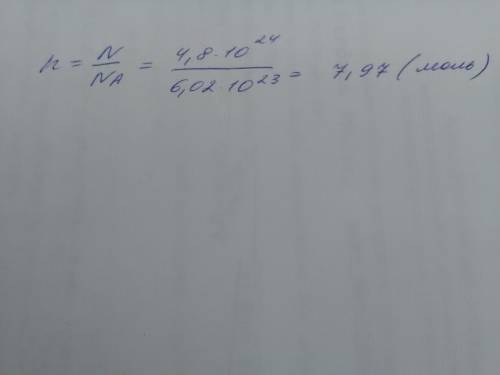 n = N/NA = 4,8·10²⁴/6,02·10²³ = 7,97 (моль)